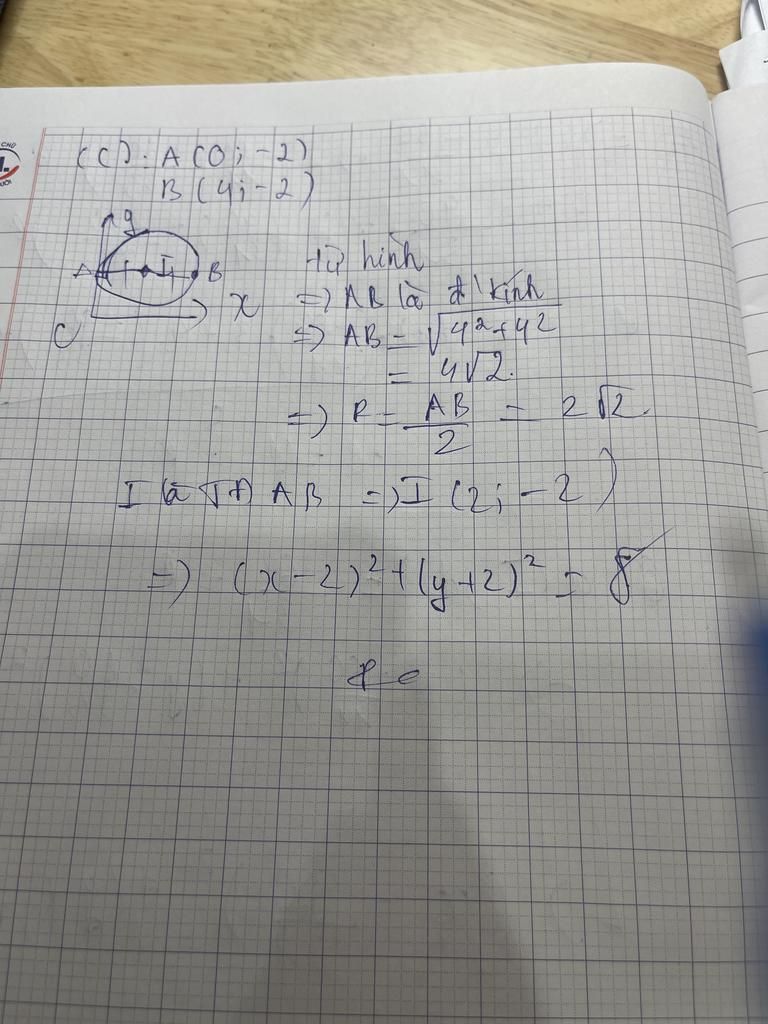 (C): A(0;-2)
B(4;-2)
y
A I B
x
từ hình
=> AB là đ' kính
=> AB = √(4²+4²)
= 4√2.
=> R = AB/2 = 2√2.
I là TĐ AB => I(2;-2)
=> (x-2)²+(y+2)² = 8